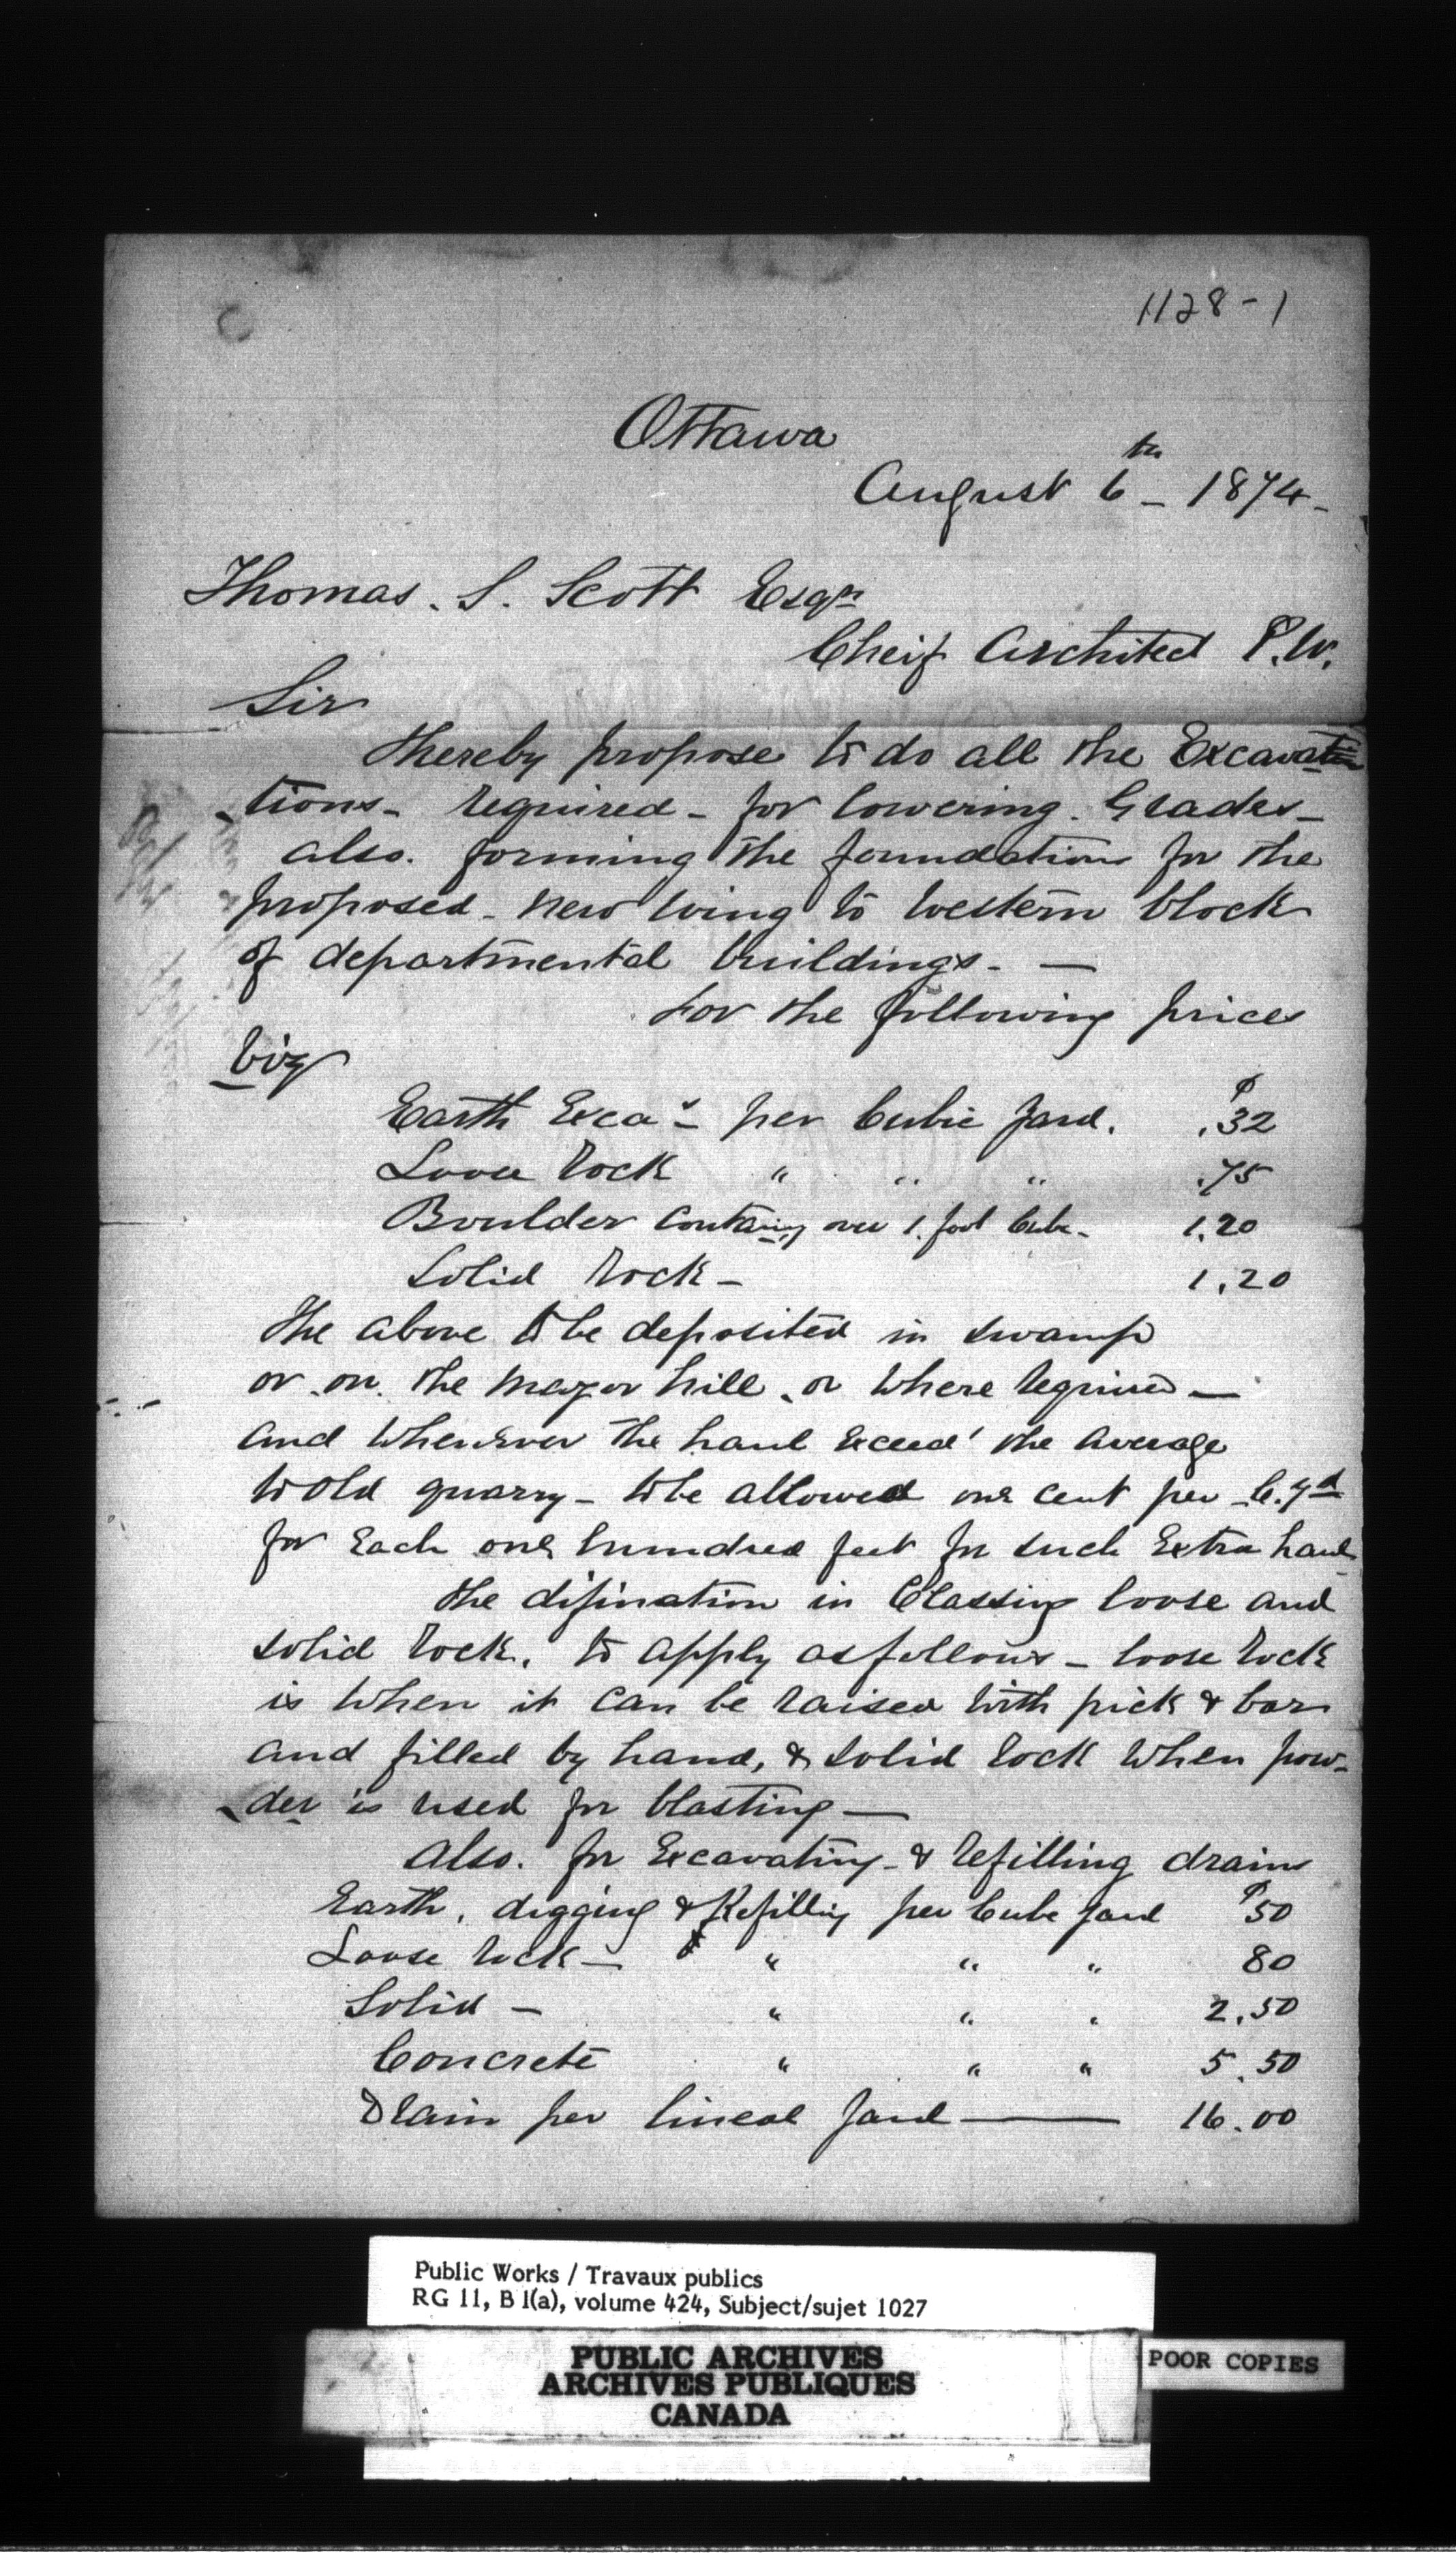 1128-1
Ottawa
August 6th - 1874-
Thomas. S. Scott Esqr
Cheif Architect P.W.
Sir
I hereby propose to do all the Excava
tions- required- for lowering. Grades-
also. forming the foundations for the
proposed- new wing to western block
of departmental buildings. —
For the following prices
viz
$
Earth Exca - per Cubic yard. .32
Loose rock " " " .75
Boulder containg over 1. foot Cube- 1.20
Solid rock - 1.20
The above to be deposited in swamp
or on. the mayor hill, or where required —
and whenever the haul exceed' the average
to old quarry - to be allowed one cent per C.Yd
for each one hundred feet for such Extra haul
the difination in Classing loose and
solid rock. to apply as follows - loose rock
is when it can be raised with pick & bar
and filled by hand, & solid rock when pow-
der is used for blasting —
Also. for Excavating- & refilling drains
Earth. digging & Refilling per Cube yard $50
Loose rock — " " " 80
Solid - " " " 2.50
Concrete " " " 5.50
Drain per lineal yard — 16.00
Public Works / Travaux publics
RG 11, B 1(a), volume 424, Subject/sujet 1027
PUBLIC ARCHIVES
ARCHIVES PUBLIQUES
CANADA
POOR COPIES